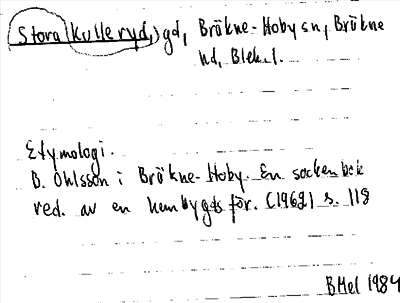 Stora (Kulleryd,) gd, Bräkne-Hoby sn, Bräkne
hd, Blek. l.
Etymologi.
B. Ohlsson i Bräkne-Hoby. En sockenbok
red. av en hembygdsför. (1962) s. 118
BHel 1984